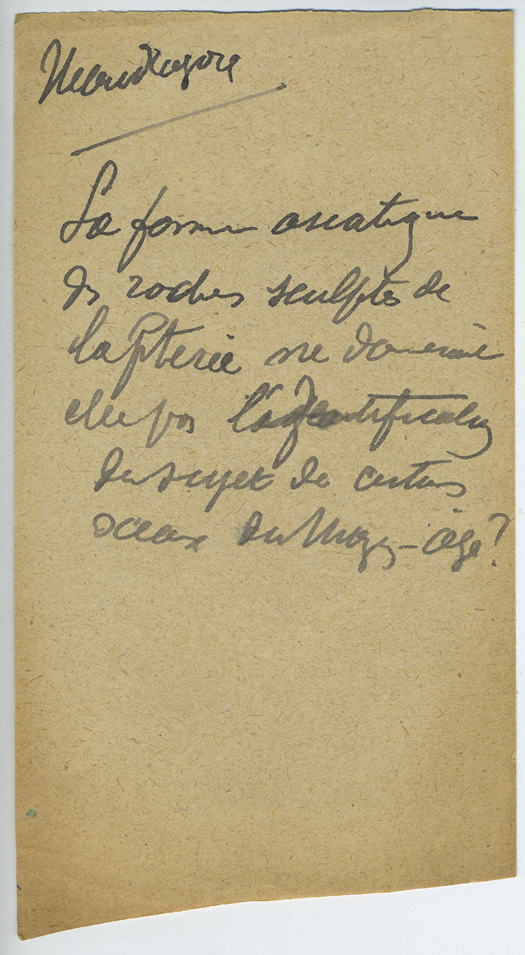 Mandragore
La forme asiatique
des roches sculptés de
la Pterie ne donnerait
elle pas l'identification
du sujet de certains
sceaux du Moyen-âge?